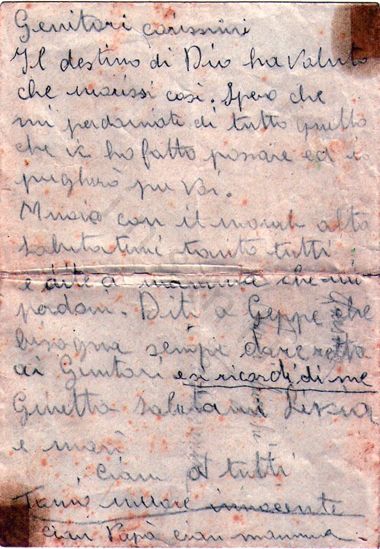 Genitori carissimi
Il destino di Dio ha voluto
che morissi così. Spero che
mi perdonate di tutto quello
che vi ho fatto passare ed io
pregherò per voi.
Muoio con il morale alto
salutatemi tanto tutti
e dite a mamma che mi
perdoni. Diti a Geppe che
bisogna sempre dare retta
ai Genitori e si ricordi di me
Ginetta salutami
e
Ciau a tutti
Tonio muore innocente
ciau Papà ciau mamma